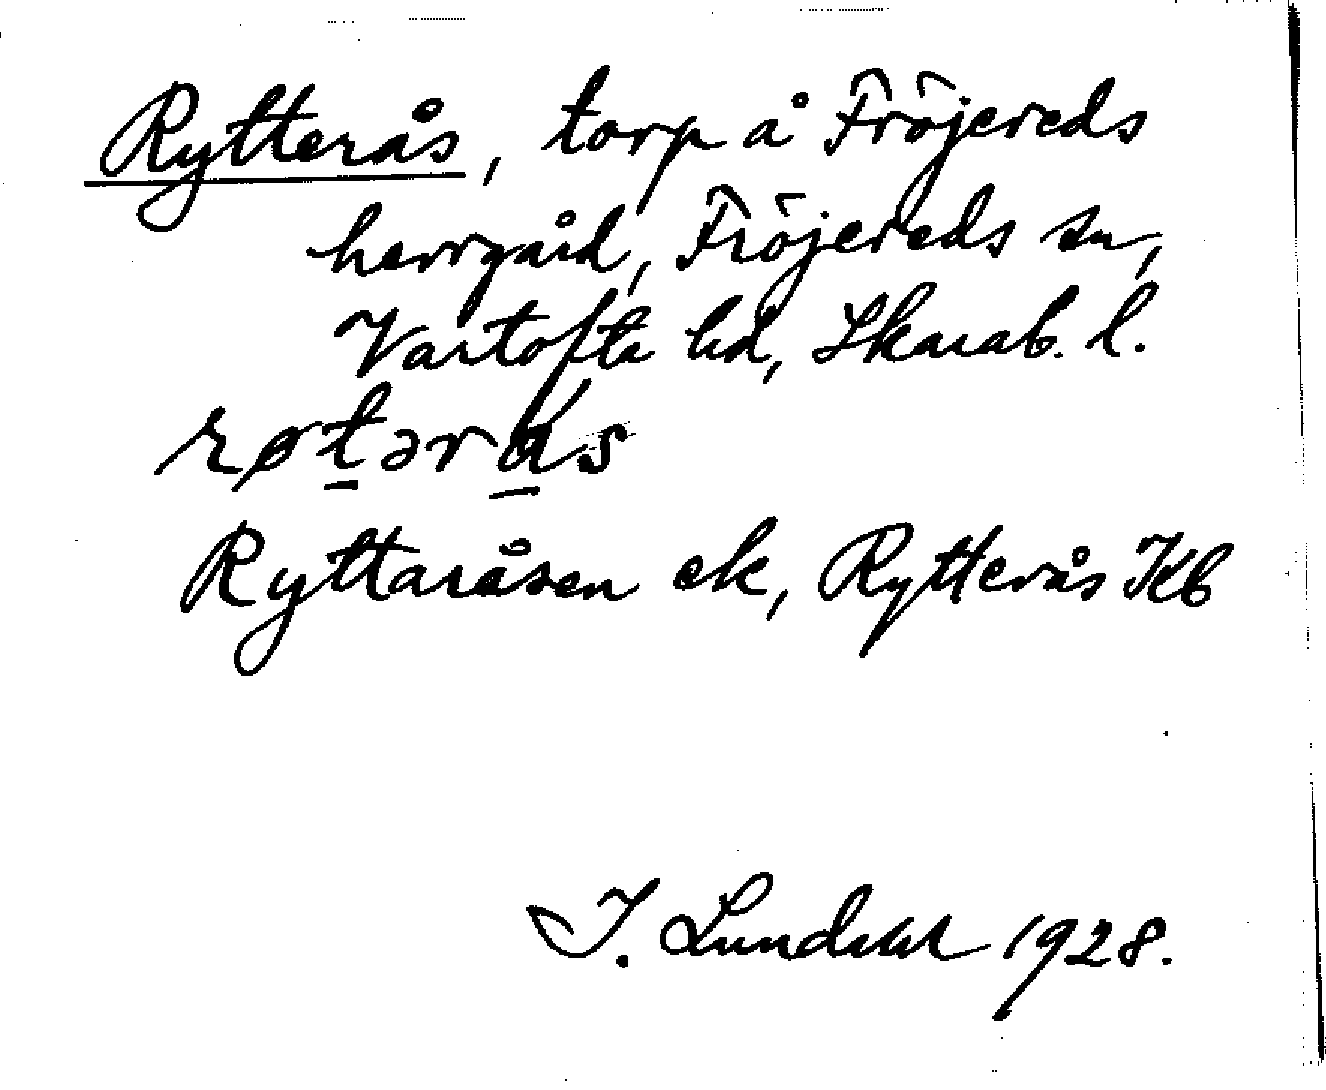 Rytterås, torp å Fröjereds
herrgård, Fröjereds sn,
Vartofta hd, Skarab. l.
røtərɑs
Ryttaråsen ek, Rytterås Kb
I. Lundahl 1928.